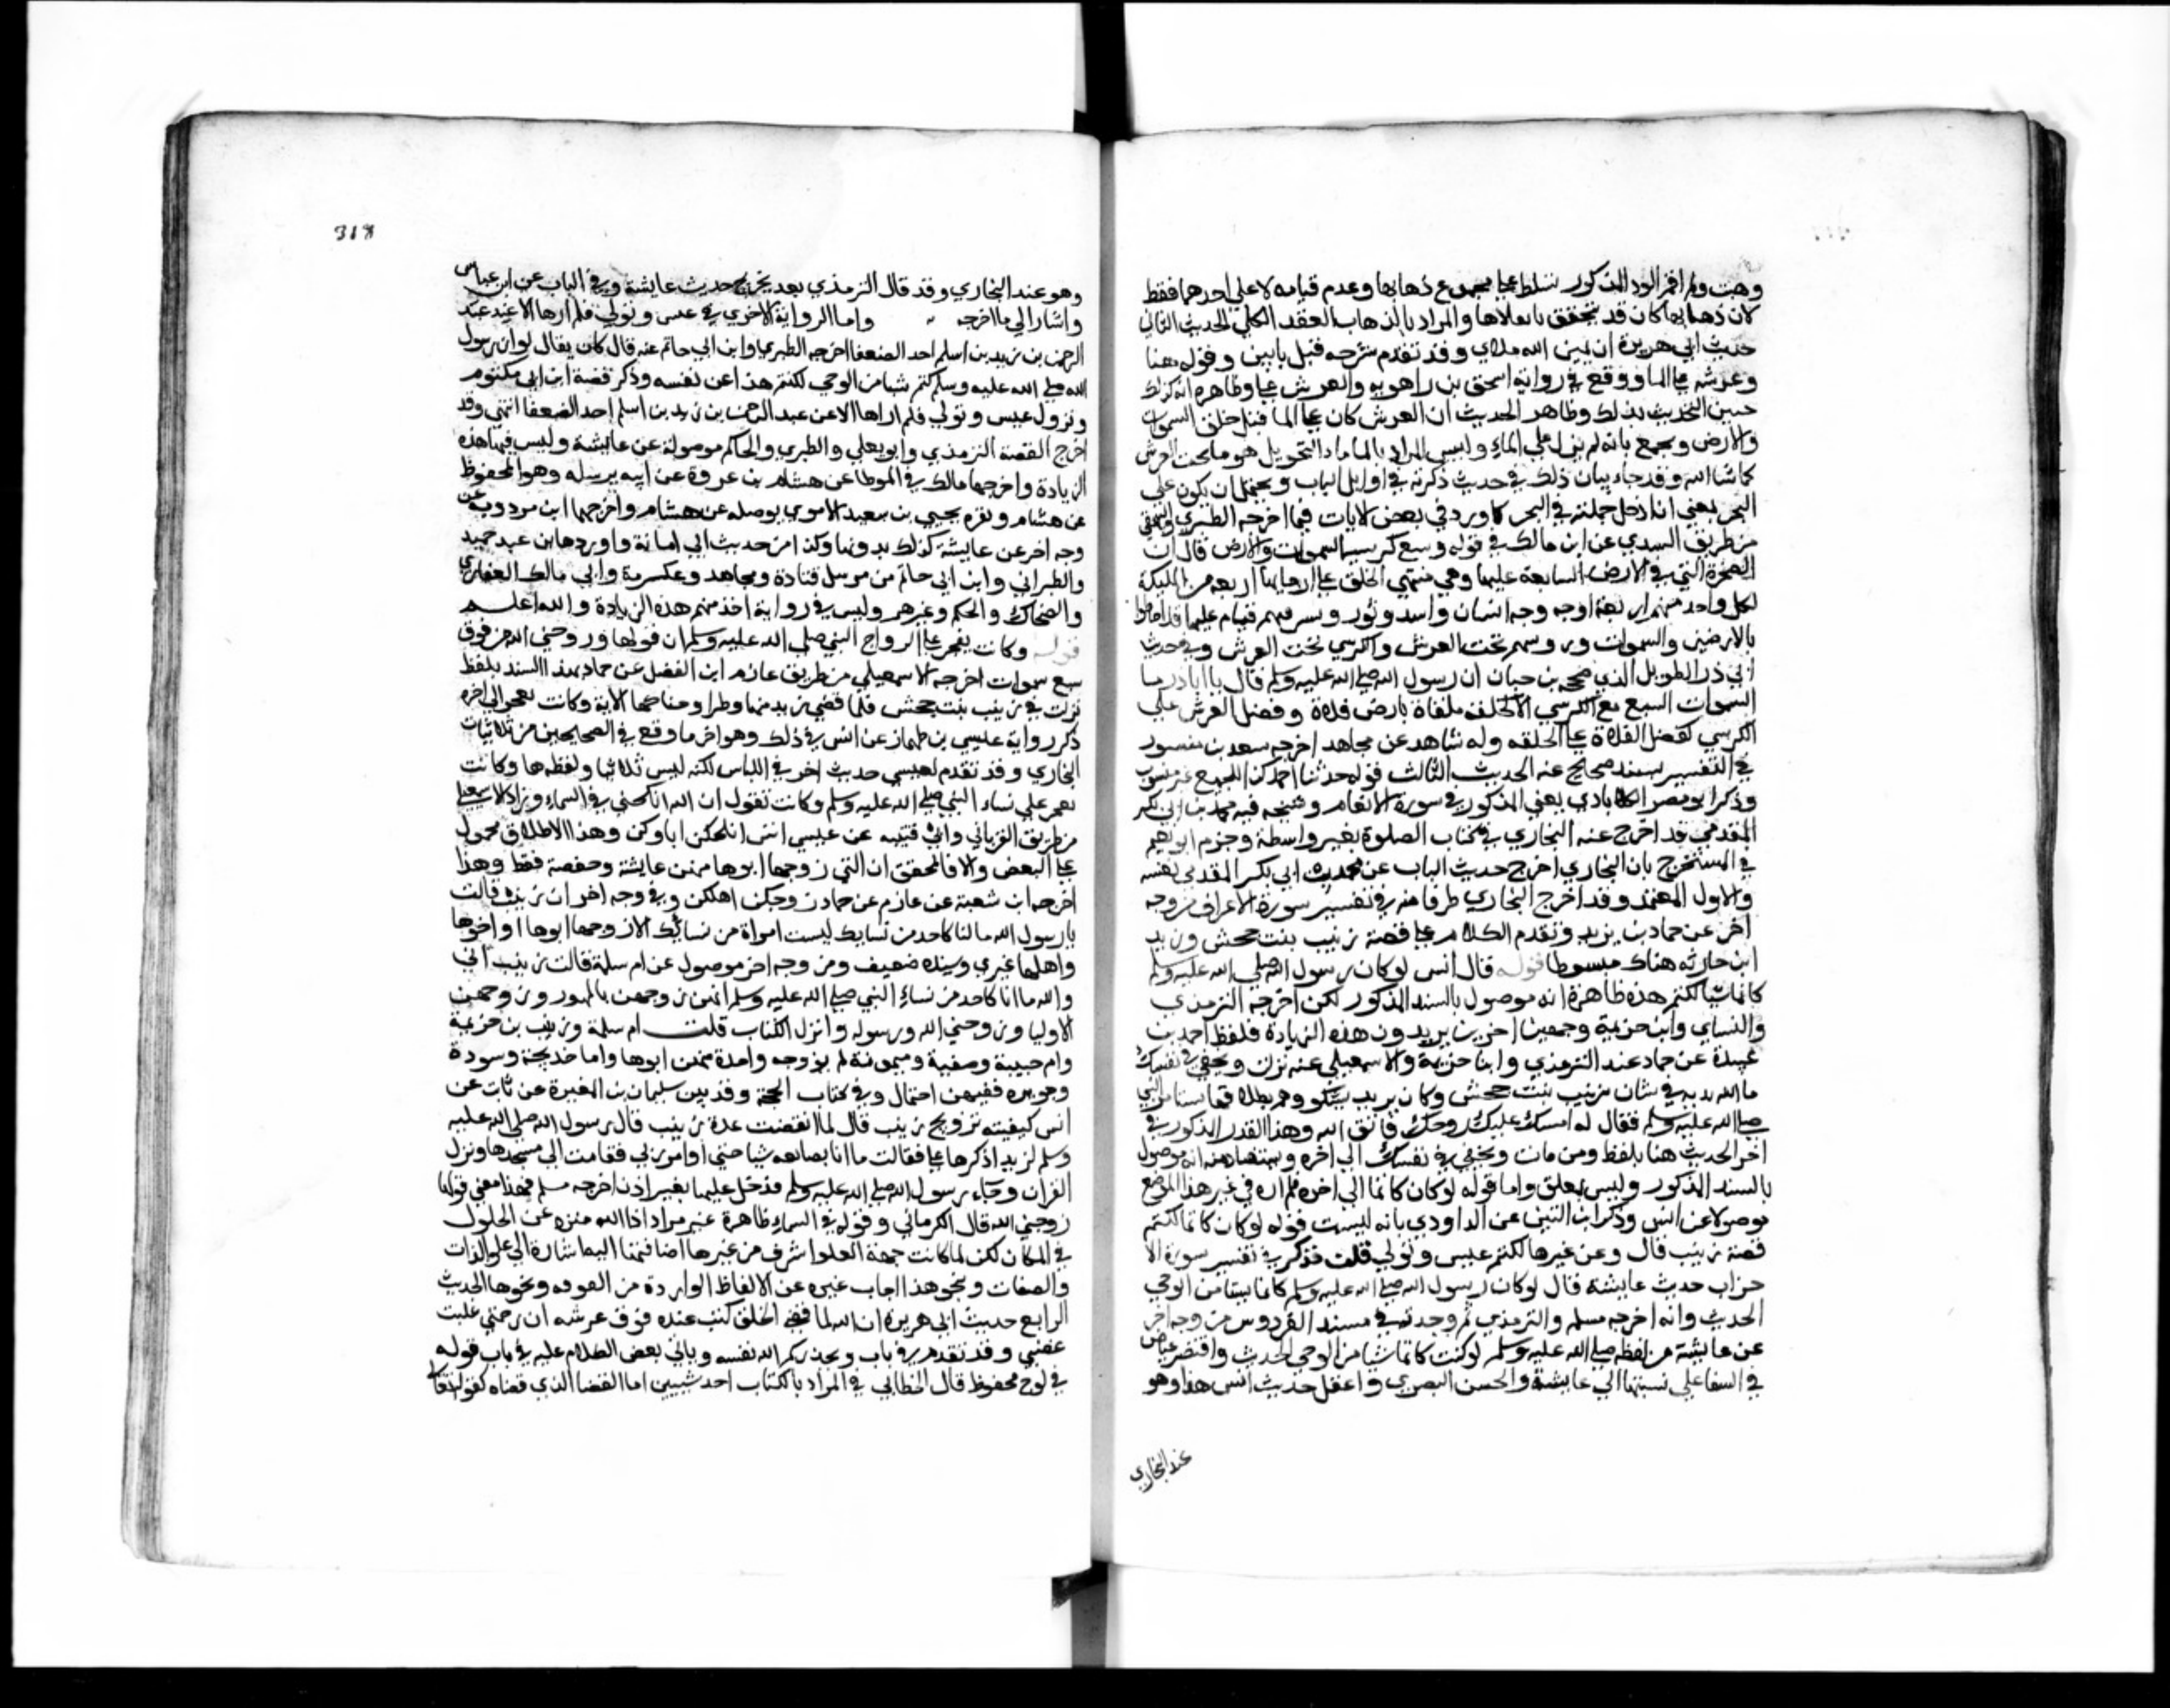 وهبت ولم افز الود المذكور تسلط على مجموع ذهابها وعدم قيامه لا على احدهما فقط
لان ذهابها كان قد تحقق بانحلالها والمراد بالذهاب العقد الكلي الحديث الثاني
حديث ابي هريرة ان يمين الله ملاي وقد تقدم شرحه قبل بابين وقوله هنا
وعرشه على الما ووقع في رواية اسحق بن راهويه والعرش على وظاهره انه كذلك
حين التحديث بذلك وظاهر الحديث ان العرش كان على الما قبل خلق السموات
والارض ويجمع بانه لم يزل على الماء وليس المراد بالما ماء البحر بل هو ما تحت العرش
كما شا الله وقد جاء بيان ذلك في حديث ذكرته في اوايل الباب ويحتمل ان يكون على
البحر بمعنى ان ارجل حملته في البحر كما ورد في بعض الاثار فيما اخرجه الطبري والبيهقي
من طريق السدي عن ابن مالك في قوله وسع كرسيه السموات والارض قال ان
الصخرة التي في الارض السابعة عليها وهي منتهي الخلق على ارجايها اربعة من المليكة
لكل واحد منهم اربعة اوجه وجه انسان واسد وثور ونسر فهم قيام عليها قد احاطوا
بالارضين والسموات وروسهم تحت العرش والكرسي تحت العرش وفي حديث
ابي ذر الطويل الذي صححه بن حبان ان رسول الله صلى الله عليه وسلم قال يا ابا ذر ما
السموات السبع مع الكرسي الا كحلقة ملقاة بارض فلاة وفضل العرش على
الكرسي كفضل الفلاة على الحلقه وله شاهد عن مجاهد اخرجه سعيد بن منصور
في التفسير بسند صحيح عنه الحديث الثالث قوله حدثنا احمد كذا للجميع غير منسوب
وذكر ابو نصر الكلاباذي يعني المذكور في سورة الانعام وشيخه فيه محمد بن ابي بكر
المقدمي قد اخرج عنه البخاري في كتاب الصلوة بغير واسطة وجزم ابو نعيم
في المستخرج بان البخاري اخرج حديث الباب عن محمد بن ابي بكر المقدمي نفسه
والاول المعتمد وقد اخرج البخاري طرفا منه في تفسير سورة الاعراف من وجه
اخر عن حماد بن يزيد وتقدم الكلام على قصة زينب بنت جحش وزيد
ابن حارثه هناك مبسوطا قوله قال انس لو كان رسول الله صلى الله عليه وسلم
كاتما شيا لكتم هذه ظاهره انه موصول بالسند المذكور لكن اخرجه الترمذي
والنساي وابن خزيمة وجمعين اخرين بريد ون هذه الزيادة فلفظ احمد بن
عبدة عن حماد عند الترمذي وابنا خزيمة والاسمعيلي عنه نزلت وتخفي في نفسك
ما الله مبديه في شان زينب بنت جحش وكان يزيد يشكو وهم بطلاقها يستامر النبي
صلى الله عليه وسلم فقال له امسك عليك زوجك واتق الله وهذا القدر المذكور في
اخر الحديث هنا بلفظ وعن ثابت وتخفي في نفسك الى اخره ويستفاد منه انه موصول
بالسند المذكور وليس بمعلق واما قوله لو كان كاتما الى اخره فلم اره في غير هذا الموضع
موصولا عن انس وذكر ابن التين عن الداودي بانه لينسب قوله لو كان كاتما لكتم
قصة زينب قال وعن غيرها لكتم عبس وتولى قلت قد ذكر في تفسير سورة الا
حزاب حديث عايشة قال لو كان رسول الله صلى الله عليه وسلم كاتما شيئا من الوحي
الحديث وانه اخرجه مسلم والترمذي ثم وجدته في مسند الفردوس من وجه اخر
عن عايشة من لفظه صلى الله عليه وسلم لو كنت كاتما شيا من الوحي الحديث واقتصر عياض
في الشفا على نسبتها الى عايشة والحسن البصري واغفل حديث انس هذا وهو
عند البخاري
318
وهو عند البخاري وقد قال الترمذي بعد تخريج حديث عايشة وفي الباب عن ابن عباس
واشار الى ما اخرجه واما الرواية الاخري في عبس وتولي فلم ارها الا عند عبد
الرحمن بن زيد بن اسلم احد الضعفا اخرجه الطبري وابن ابي حاتم عنه قال كان يقال لو ان رسول
الله صلى الله عليه وسلم كتم شيا من الوحي لكتم هذا عن نفسه وذكر قصة ابن ام مكتوم
ونزول عبس وتولي فلم اراها الا عن عبد الرحمن بن زيد بن اسلم احد الضعفا انتهي وقد
اخرج القصة الترمذي وابو يعلي والطبري والحاكم موصولة عن عايشة وليس فيها هذه
الزيادة واخرجها مالك في الموطا عن هشام بن عروة عن ابيه يرسله وهو المحفوظ
عن هشام وتفرد يحيي بن سعيد الاموي بوصله عن هشام واخرجها ابن مردويه من
وجه اخر عن عايشة كذلك بدونها وكذا من حديث ابي امامة واوردها ابن عبد حميد
والطبراني وابن ابي حاتم من مرسل قتادة ومجاهد وعكرمة وابي مالك الغفاري
والضحاك والحكم وغيرهم وليس في رواية احد منهم هذه الزيادة والله اعلم
قوله وكانت تفخر على ازواج النبي صلى الله عليه وسلم ان قولها وزوجني الله من فوق
سبع سموات اخرجه الاسمعيلي من طريق عارم ابن الفضل عن حماد بهذا السند بلفظ
نزلت في زينب بنت جحش فلما قضي زيد منها وطرا زوجناكها الاية وكانت تفخر الى اخره
ذكر رواية عليسي بن طهمان عن انس في ذلك وهو اخر ما وقع في الصحيحين من ثلاثيات
البخاري وقد تقدم لعيسي حديث اخر في اللباس لكنه ليس ثلاثيا ولفظه ها وكانت
تفخر على نساء النبي صلى الله عليه وسلم وكانت تقول ان الله انكحني في السماء وزاد الاسمعيلي
من طريق الفريابي وابي قتيبه عن عيسي انتن انكحكن اباوكن وهذا الاطلاق محمول
على البعض والا فالمحقق ان التي زوجها ابوها منهن عايشة وحفصة فقط وهذا
اخرجه ابن شعبة عن عارم عن حماد زوجكن اهلكن وفي وجه اخر ان زينب قالت
يا رسول الله ما لنا كاحد من نسايك ليست امراة من نسايك الا زوجها ابوها او اخوها
واهلها غيري وسنده ضعيف ومن وجه اخر موصول عن ام سلمة قالت زينب اني
والله ما انا كاحد من نساء النبي صلى الله عليه وسلم انهن زوجهن بالمهور وزوجهن
الاوليا وزوجني الله ورسوله وانزل الكتاب قلت ام سلمة وزينب بن خزيمة
وام حبيبة وصفية وميمونة لم يزوجه واحدة منهن ابوها واما خديجة وسودة
وجويره ففيهن احتمال وفي كتاب الحجة وقد بين سليمان بن المغيرة عن ثابت عن
انس كيفيته تزويج زينب قال لما انقضت عدة زينب قال رسول الله صلى الله عليه
وسلم لزيد اذكرها على فقالت ما انا بصانعه شيا حتي اوامر ربي فقامت الى مسجدها ونزل
القران وجاء رسول الله صلى الله عليه وسلم فدخل عليها بغير اذن اخرجه مسلم فهذا معني قولها
زوجني الله قال الكرماني وقوله في السماء ظاهرة غير مراد اذ الله منزه عن الحلول
في المكان لكن لما كانت جهة العلو اشرف من غيرها اضافتها اليه اشارة الى علو الذات
والصفات وبنحو هذا اجاب غيره عن الالفاظ الواردة من الفوقه ونحوها الحديث
الرابع حديث ابي هريرة ان الله لما قضى الخلق كتب عنده فوق عرشه ان رحمتي غلبت
غضبي وقد تقدم في باب ويحذركم الله نفسه وياتي بعض الكلام عليه في باب قوله
في لوح محفوظ قال الخطابي في المراد بالكتاب احد شيين اما القضا الذي قضاه كقوله تعالى